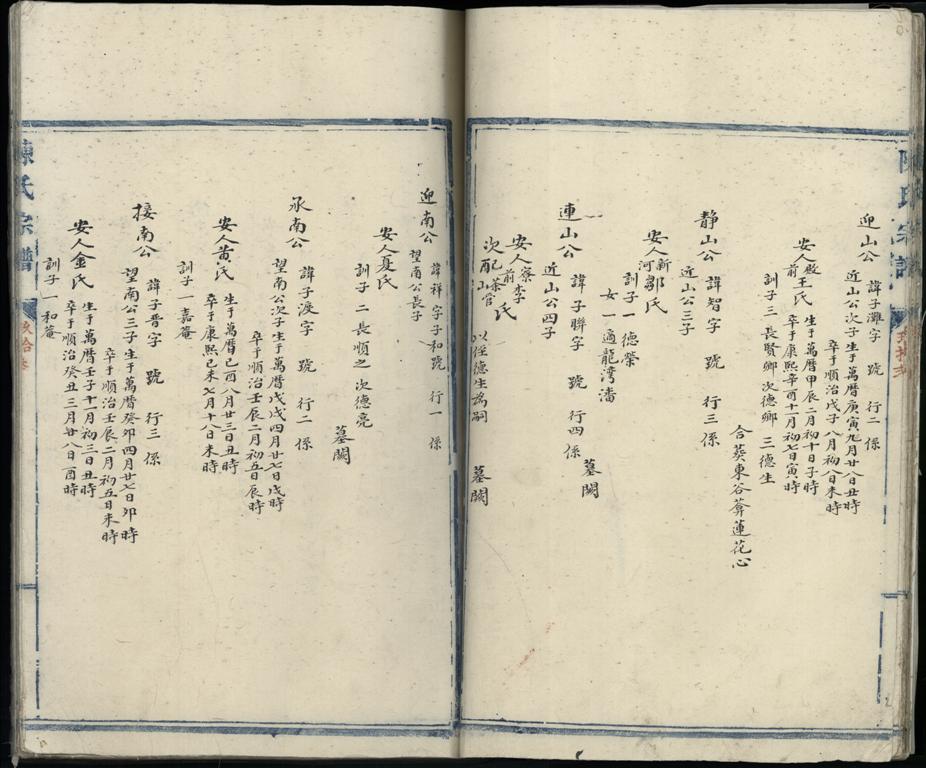 迎山公 諱子灘字 號 行二 係
近山公次子生于萬曆庚寅九月廿八日丑時
卒于順治戊子八月初八日未時
安人殿前王氏 生于萬曆甲辰二月初十日子時
卒于康熙辛酉十一月初七日寅時
訓子三 長賢鄉 次德鄉 三德生
合葵東谷葊蓮花心
静山公 諱智字 號 行三 係
近山公三子
安人新河鄒氏
訓子一 德榮
女一 適龍湾潘
連山公 諱子聯字 號 行四 係
近山公四子
墓闕
安人寮前李氏
次配茶山官 以侄德生為嗣 墓闕
迎南公 諱祥字子和號 行一 係
望南公長子
安人夏氏
訓子 二 長順之 次德亮
墓闕
永南公 諱子渡字 號 行二 係
望南公次子生于萬曆戊戌四月廿七日戌時
卒于順治壬辰二月初五日辰時
安人黄氏 生于萬曆己酉八月廿三日丑時
卒于康熙己未七月十八日未時
訓子一嘉菴
接南公 諱子晋字 號 行三 係
望南公三子生于萬曆癸卯四月廿七日卯時
卒于順治壬辰二月初五日未時
安人金氏 生于萬曆壬子十一月初三日丑時
卒于順治癸丑三月廿八日酉時
訓子一和菴
陳氏宗譜